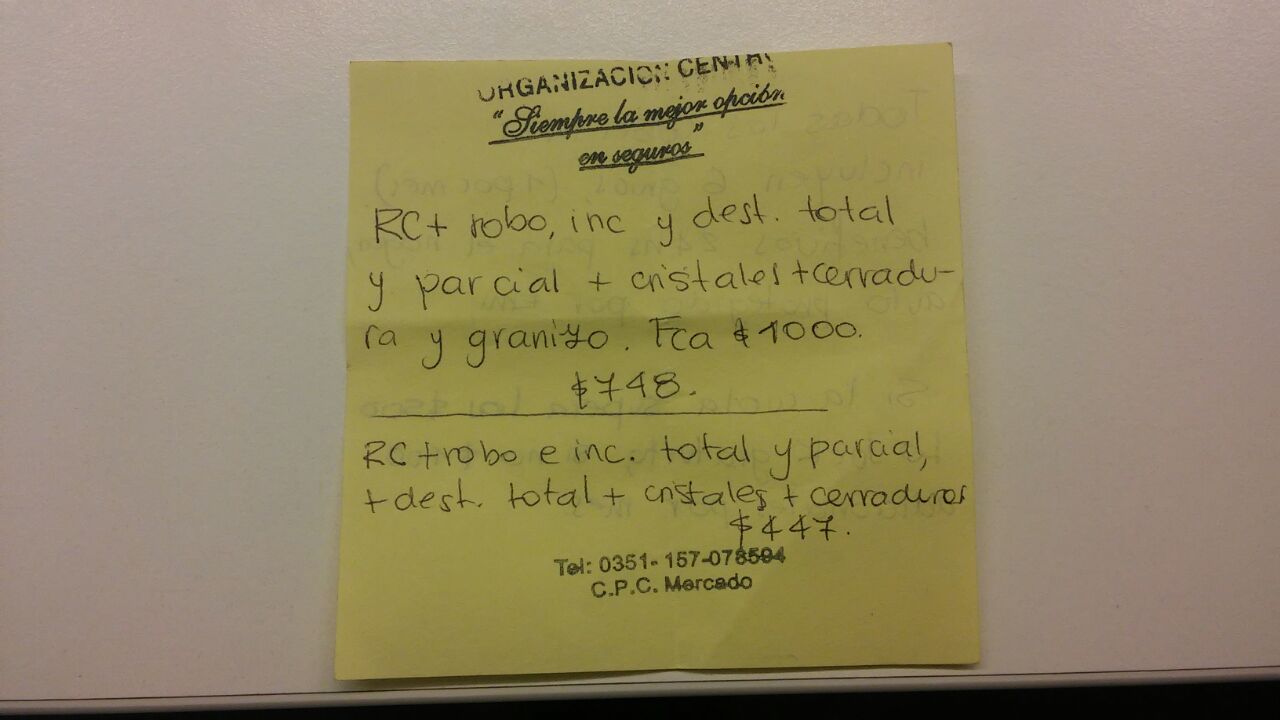 ORGANIZACION
"Siempre la mejor opción
en seguros"
RC + robo, inc y dest. total
y parcial + cristales + cerradu-
ra y granizo. Fca $1000.
$748.
RC + robo e inc. total y parcial,
+ dest. total + cristales + cerraduras
$447.
Tel: 0351- 157-078594
C.P.C. Mercado